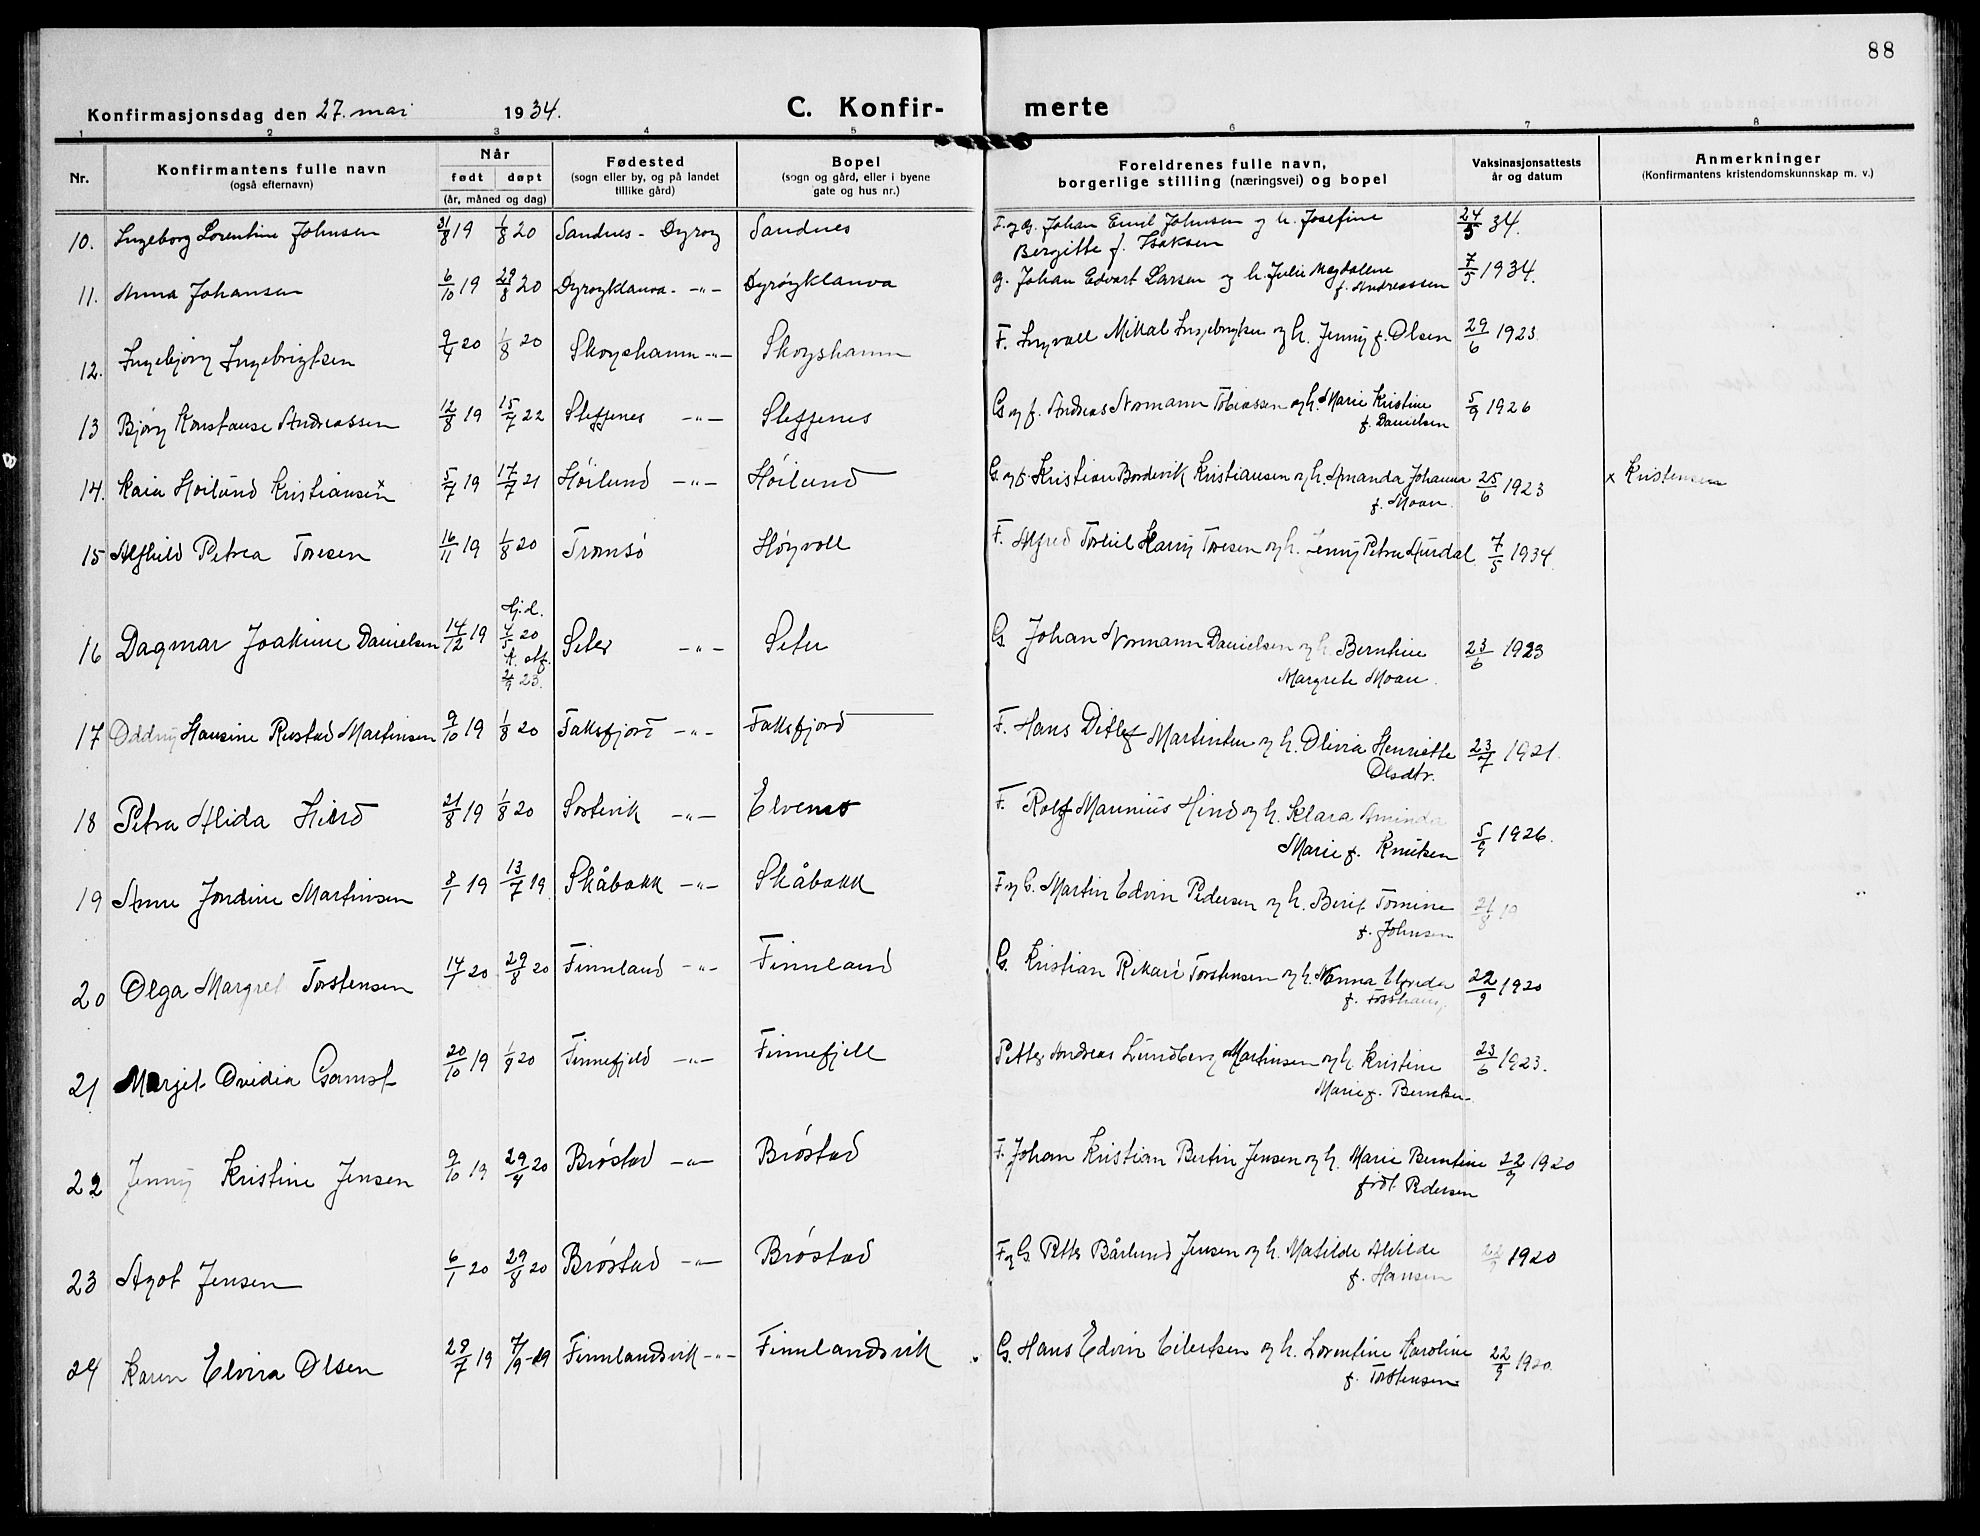 88
Konfirmasjonsdag den 27. mai 1934. C. Konfir- merte
1 2 3 4 5 6 7 8
Nr. Konfirmantens fulle navn (også efternavn) Når født døpt (år, måned og dag) Fødested (sogn eller by, og på landet tillike gård) Bopel (sogn og gård, eller i byene gate og hus nr.) Foreldrenes fulle navn, borgerlige stilling (næringsvei) og bopel Vaksinasjonsattests år og datum Anmerkninger (Konfirmantens kristendomskunnskap m. v.)
10. Ingeborg Lorentine Johnsen 31/8 19 1/8 20 Sandnes - Dyrøy Sandnes F. og G. Johan Emil Johnsen og h. Josefine 24/5 34.
Bergitte f. Isaksen
11. Anna Johansen 6/10 19 29/8 20 Dyrøyklauva - -"- Dyrøyklauva G. Johan Edvart Larsen og h. Julie Magdalene 7/5 1934.
f. Andreassen
12. Ingebjørg Ingebrigtsen 9/4 20 1/8 20 Skogshamn -"- Skogshamn F. Ingvall Mikal Ingebrigtsen og h. Jenny f. Olsen 29/6 1923
13 Bjørg Konstanse Andreassen 12/8 19 15/7 22 Steffenes -"- Steffenes G og f. Andreas Normann Tobiassen og h. Marie Kristine 5/9 1926
f. Danielsen
14. Kaia Høilund Kristiansen x 5/7 19 17/7 21 Høilund -"- Høilund G og F Kristian Bordevik Kristiansen og h. Amanda Johanna 25/6 1923 x Kristensen
f. Moan
15 Alfhild Petrea Toresen 16/11 19 1/8 20 Tromsø Høgvoll F. Alfred Harry Toresen og h. Jenny Petra Aurdal 7/5 1934
16 Dagmar Joakime Danielsen 14/12 19 Hj.d. 4/5 20 Seter -"- Seter G Johan Normann Danielsen og h. Berntine 23/6 1923
Margrete Moan.
17 Oddny Hansine Rustad Martinsen 9/10 19 1/8 20 Faksfjord -"- Faksfjord F. Hans Ditlef Martinsen og h. Olivia Henriette 23/7 1921.
Olsdtr.
18 Petra Alida Hind 21/8 19 1/8 20 Sørtevik -"- Elvenes F. Rolf Marinius Hind og h. Klara Aminda 5/9 1926.
Marie f. Knutsen
19 Anne Jordine Martinsen 8/1 19 13/7 19 Skåbakk -"- Skåbakk F og G. Martin Edvin Pedersen og h. Berit Tomine 21/8 19
f. Johnsen
20 Olga Margret Torstensen 14/1 20 29/8 20 Finnland -"- Finnland G. Kristian Rikard Torstensen og h. 22/9 1920
21 Marjet Ovidia Gamst 20/10 19 1/9 20 Finnefjeld -"- Finnefjell Petter Andreas Lundberg Martinsen og h. Kristine 23/6 1923.
Marie f. Berntsen
22 Jenny Kristine Jensen 9/10 19 29/4 20 Brøstad -"- Brøstad F. Johan Kristian Bertin Jensen og h. Marie Berntine 22/9 1920
født Pedersen
23 Agot Jensen 6/1 20 29/8 20 Brøstad -"- Brøstad F og G Petter Bårlund Jensen og h. Matilde Alvilde 22/9 1920
f. Hansen
24 Karen Elvira Olsen 29/7 19 7/9 19 Finnlandsvik -"- Finnlandsvik G. Hans Edvin Eilertsen og h. Lorentine Karoline 22/9 1920.
f. Torstensen